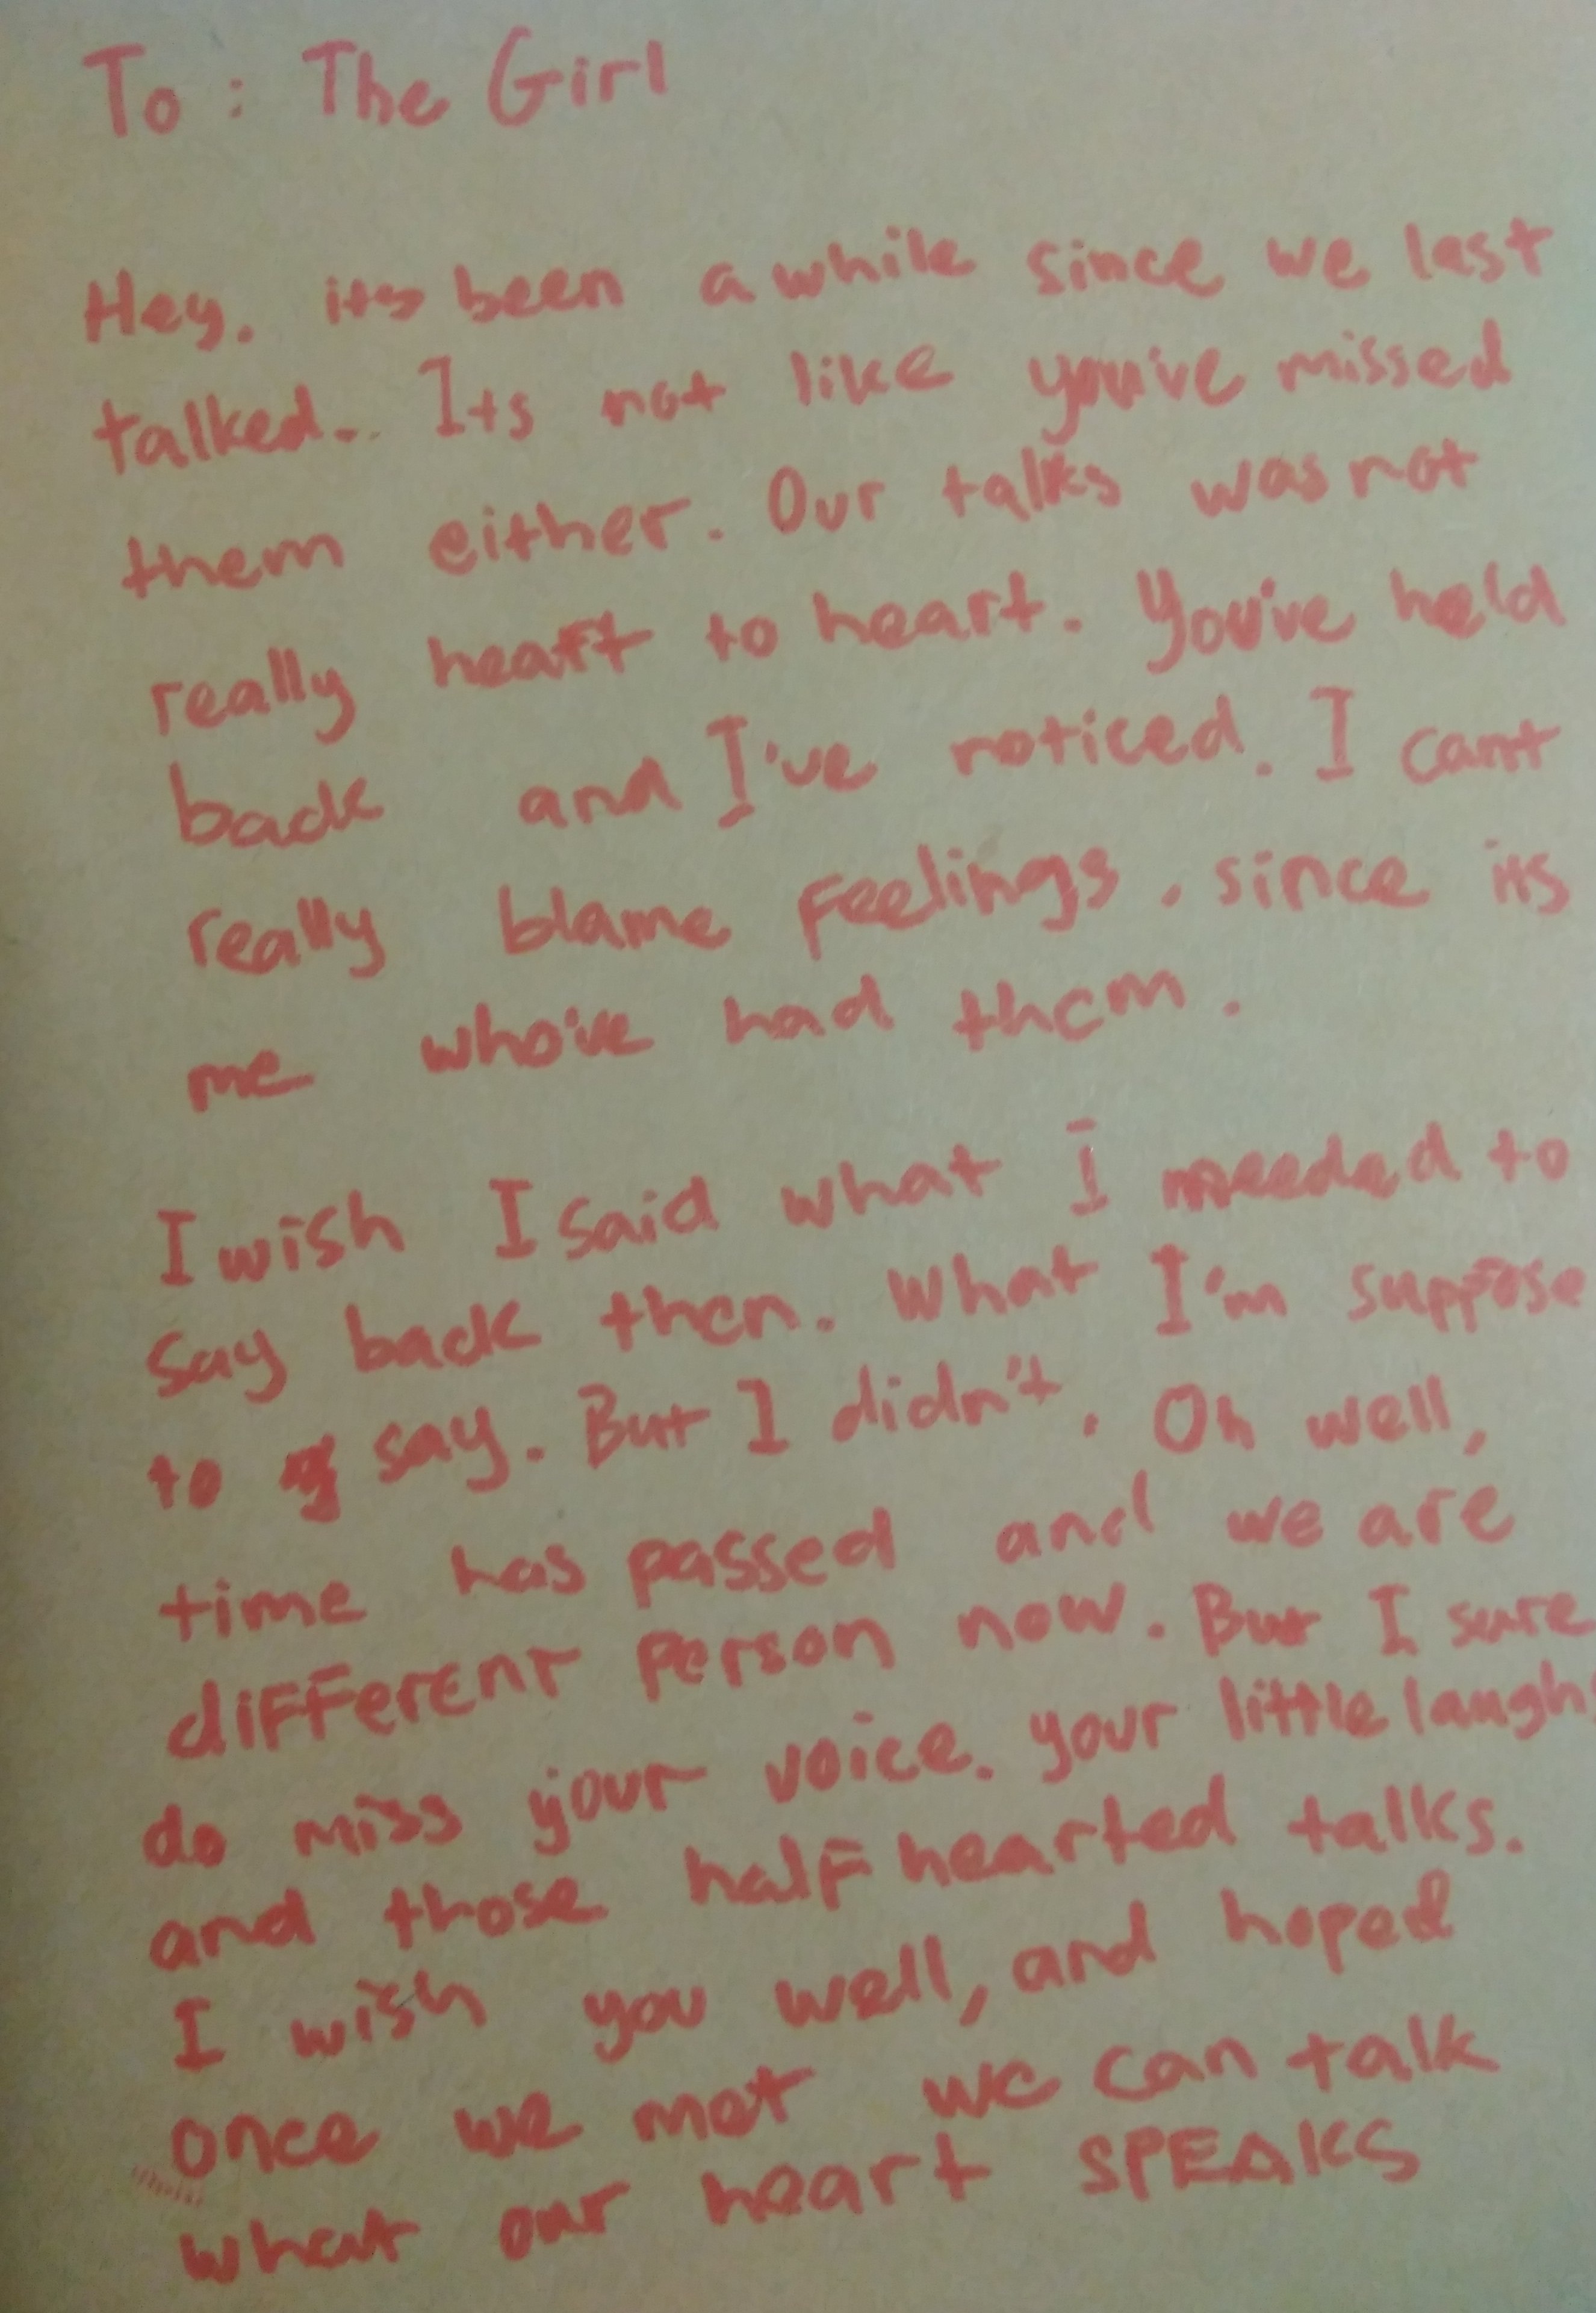 To : The Girl
Hey. its been a while since we last
talked.. Its not like you've missed
them either. Our talks was not
really heart to heart. You've held
back and I've noticed. I cant
really blame feelings, since its
me who've had them.
I wish I said what I needed to
say back then. What I'm suppose
to say. But I didn't. Oh well,
time has passed and we are
different person now. But I sure
do miss your voice. your little laughs
and those half hearted talks.
I wish you well, and hoped
once we met we can talk
what our heart SPEAKS